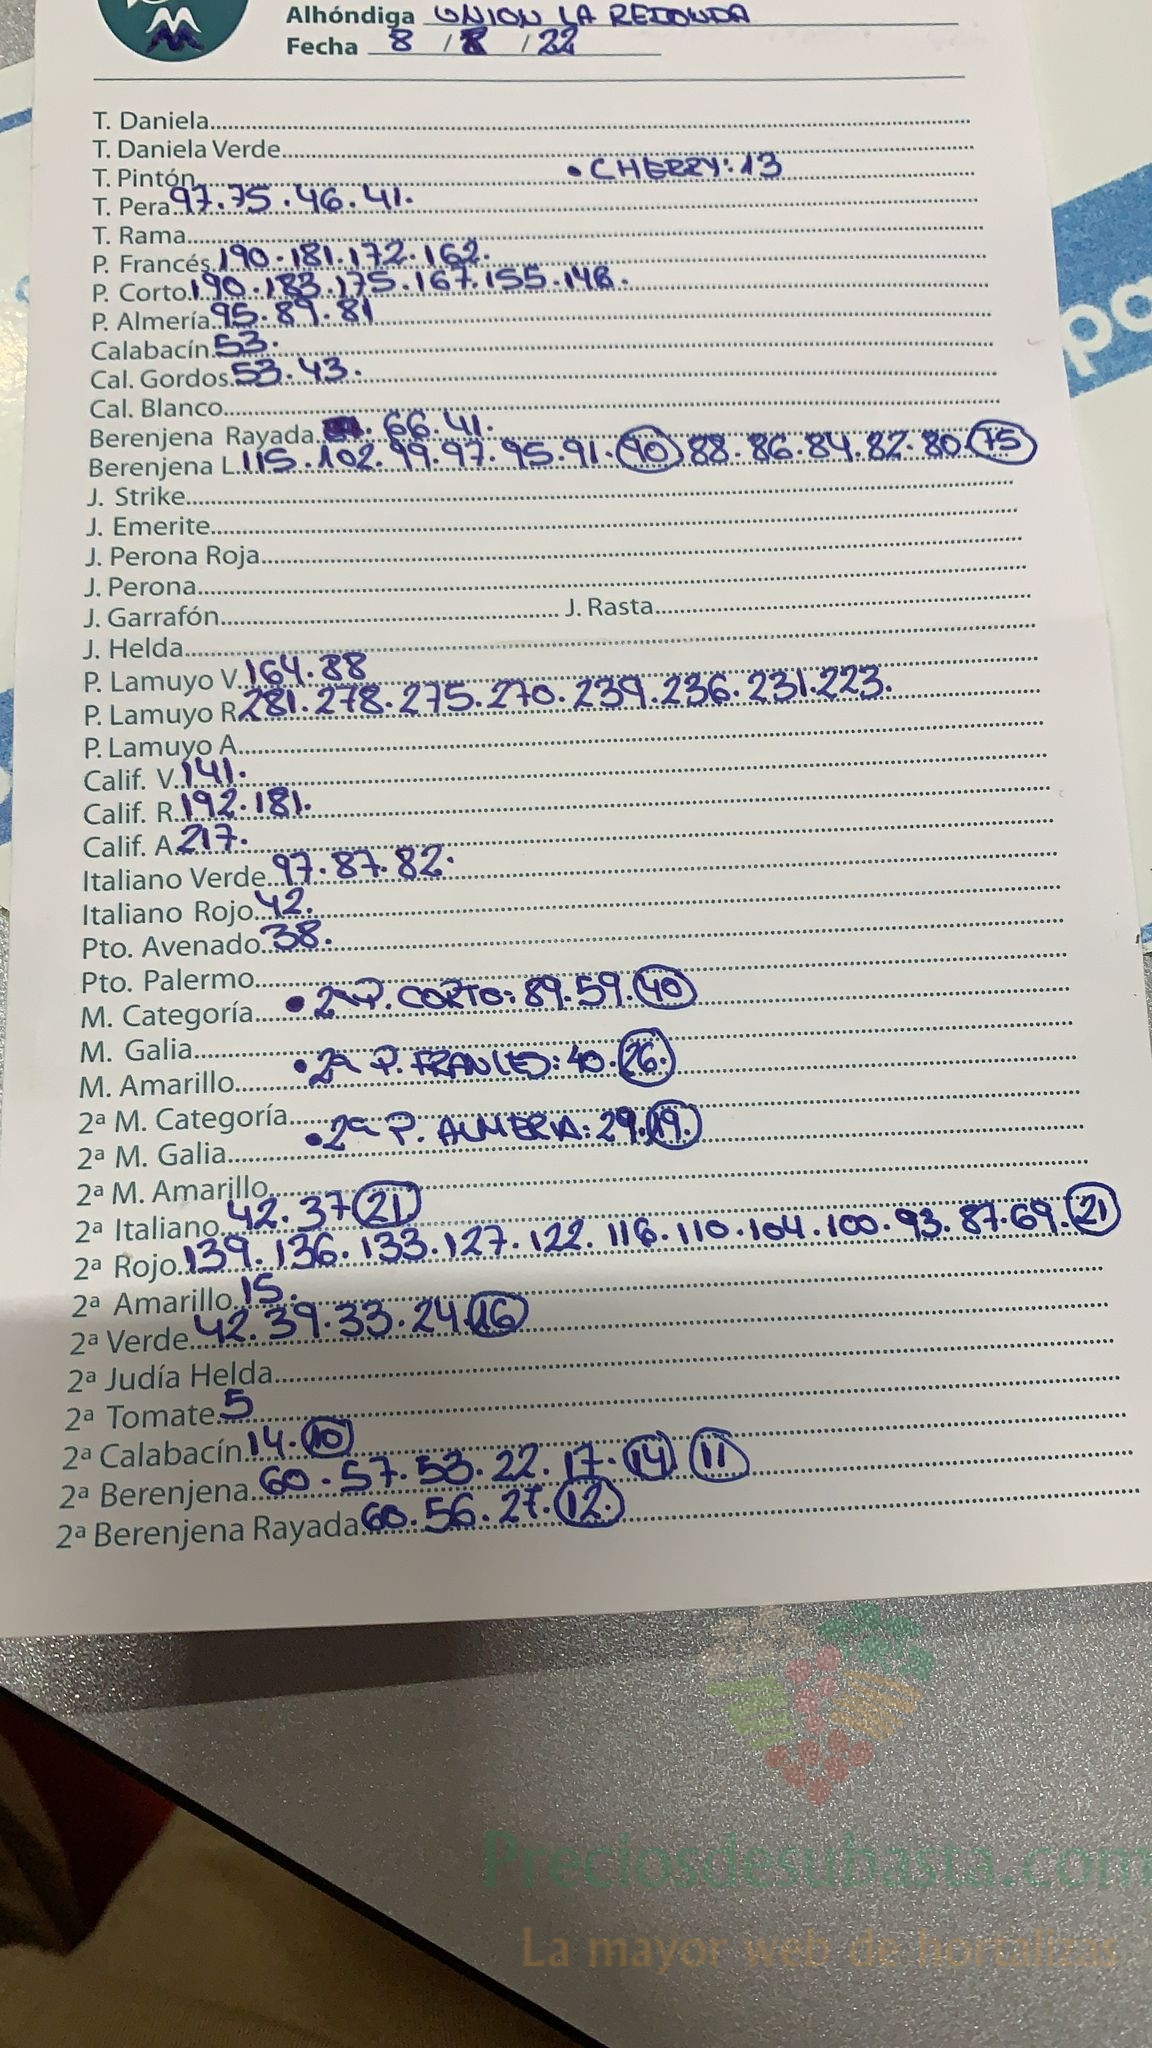 Alhóndiga UNION LA REDONDA
Fecha 8 / 8 / 22
T. Daniela
T. Daniela Verde
T. Pintón • CHERRY: 13
T. Pera 97. 75. 46. 41.
T. Rama
P. Francés 190. 181. 172. 162.
P. Corto 190. 183. 175. 167. 155. 148.
P. Almería 95. 89. 81
Calabacín 53.
Cal. Gordos 53. 43.
Cal. Blanco
Berenjena Rayada . 66. 41.
Berenjena L. 115. 102. 99. 97. 95. 91. 90 88. 86. 84. 82. 80. 75
J. Strike
J. Emerite
J. Perona Roja
J. Perona
J. Garrafón J. Rasta
J. Helda
P. Lamuyo V. 164. 88
P. Lamuyo R. 281. 278. 275. 270. 239. 236. 231. 223.
P. Lamuyo A
Calif. V. 141.
Calif. R. 192. 181.
Calif. A. 217.
Italiano Verde 97. 87. 82.
Italiano Rojo 42.
Pto. Avenado 38.
Pto. Palermo
M. Categoría • 2ª P. CORTO: 89. 59. 40
M. Galia
M. Amarillo • 2ª P. FRANCES: 40. 26.
2ª M. Categoría
2ª M. Galia • 2ª P. ALMERIA: 29. 19.
2ª M. Amarillo
2ª Italiano 42. 37 21
2ª Rojo 139. 136. 133. 127. 122. 116. 110. 104. 100. 93. 87. 69. 21
2ª Amarillo 15.
2ª Verde 42. 39. 33. 24. 16
2ª Judía Helda
2ª Tomate 5
2ª Calabacín 14. 10
2ª Berenjena 60. 57. 53. 22. 17. 14 11
2ª Berenjena Rayada 60. 56. 27. 12.
Preciosdesubasta.com
La mayor web de hortalizas